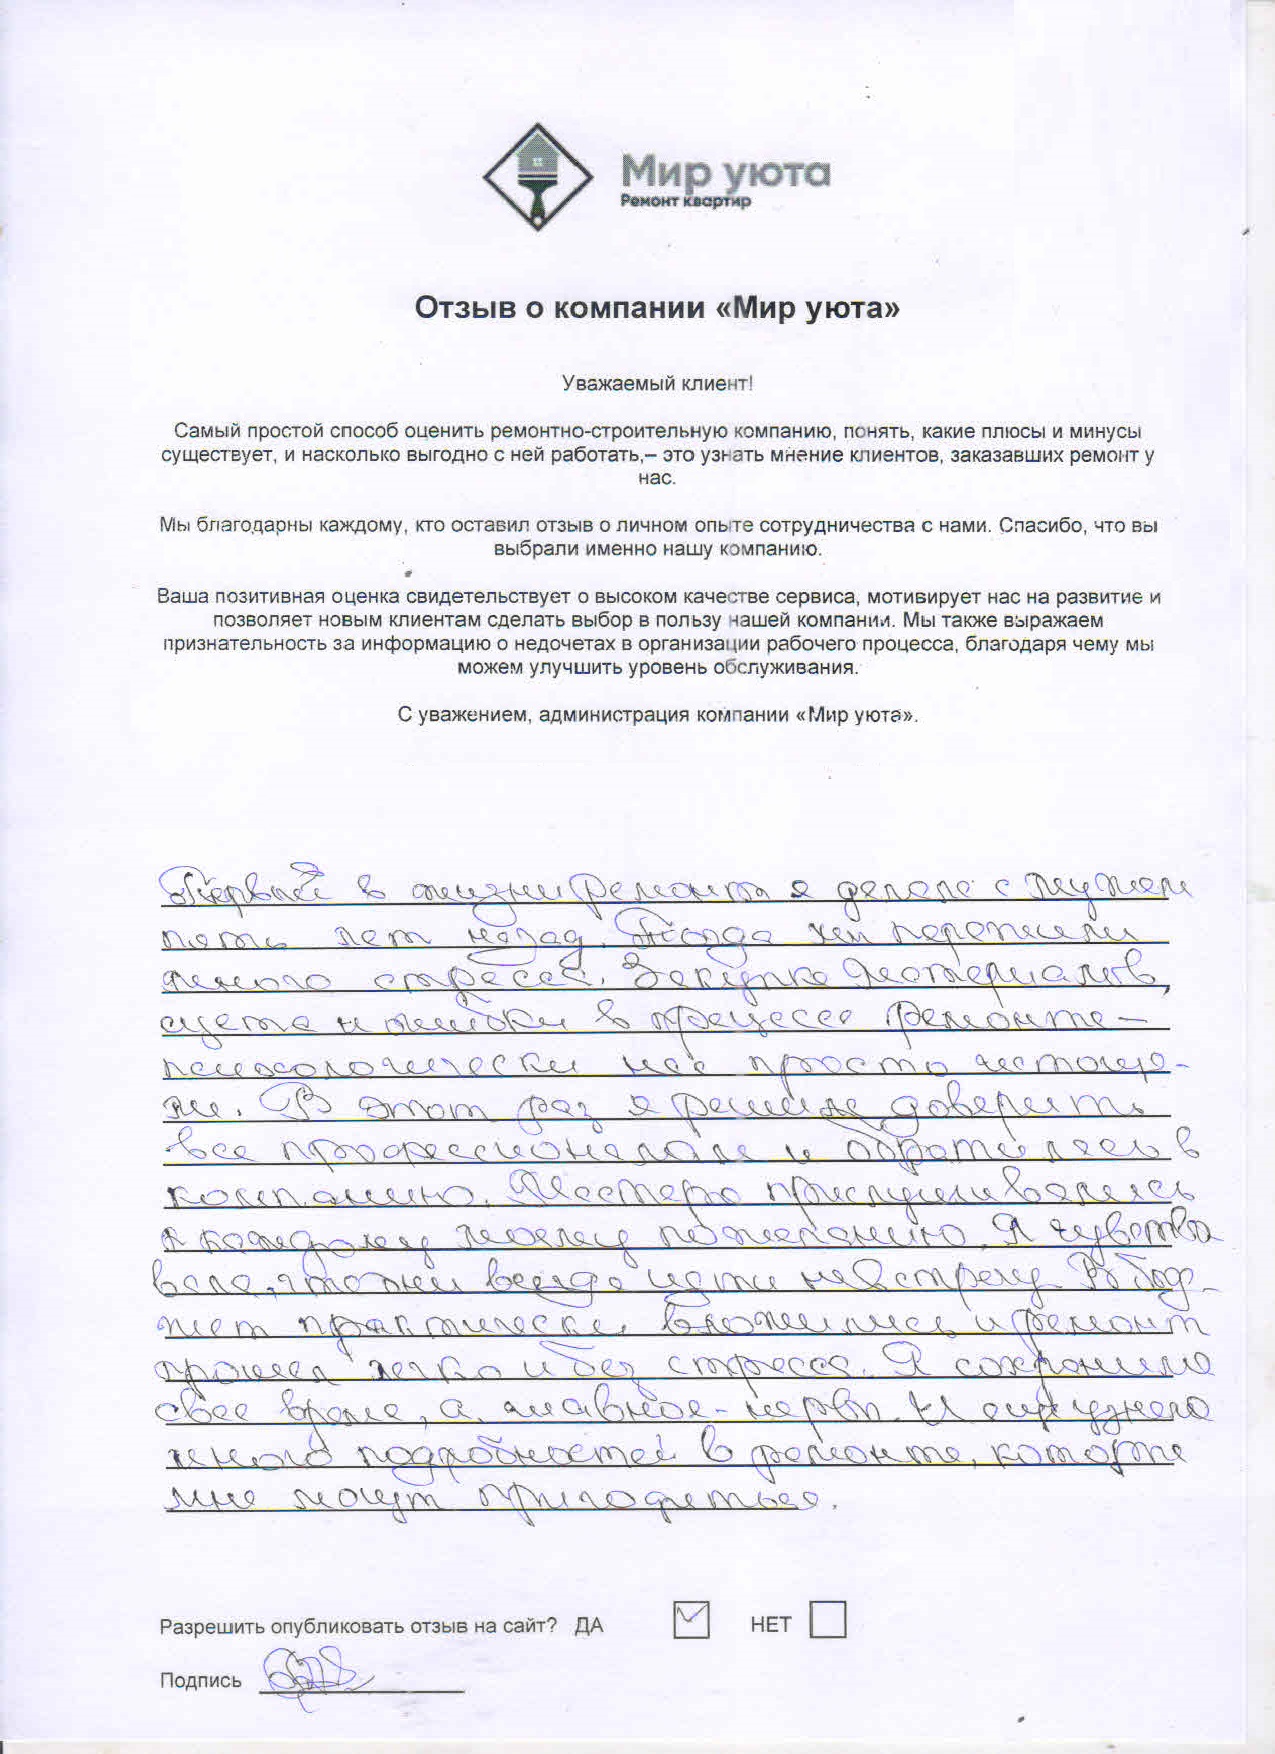 Мир уюта
Ремонт квартир
Отзыв о компании «Мир уюта»
Уважаемый клиент!
Самый простой способ оценить ремонтно-строительную компанию, понять, какие плюсы и минусы
существует, и насколько выгодно с ней работать,– это узнать мнение клиентов, заказавших ремонт у
нас.
Мы благодарны каждому, кто оставил отзыв о личном опыте сотрудничества с нами. Спасибо, что вы
выбрали именно нашу компанию.
Ваша позитивная оценка свидетельствует о высоком качестве сервиса, мотивирует нас на развитие и
позволяет новым клиентам сделать выбор в пользу нашей компании. Мы также выражаем
признательность за информацию о недочетах в организации рабочего процесса, благодаря чему мы
можем улучшить уровень обслуживания.
С уважением, администрация компании «Мир уюта».
Первый в жизни ремонт я делала с мужем
пять лет назад. Тогда мы пережили
много стресса. Закупка материалов,
суета и ошибки в процессе ремонта –
психологически нас просто истоща-
ли. В этот раз я решила доверить
все профессионалам и обратилась в
компанию. Мастера прислушивались
к каждому моему пожеланию. Я чувство
вала, что они всегда идти навстречу. В бюд-
жет практически вложились и ремонт
прошел легко и без стресса. Я сохранила
свое время, а главное - нервы. И еще узнала
много подробностей в ремонте, которые
мне могут пригодиться.
Разрешить опубликовать отзыв на сайт? ДА НЕТ
Подпись